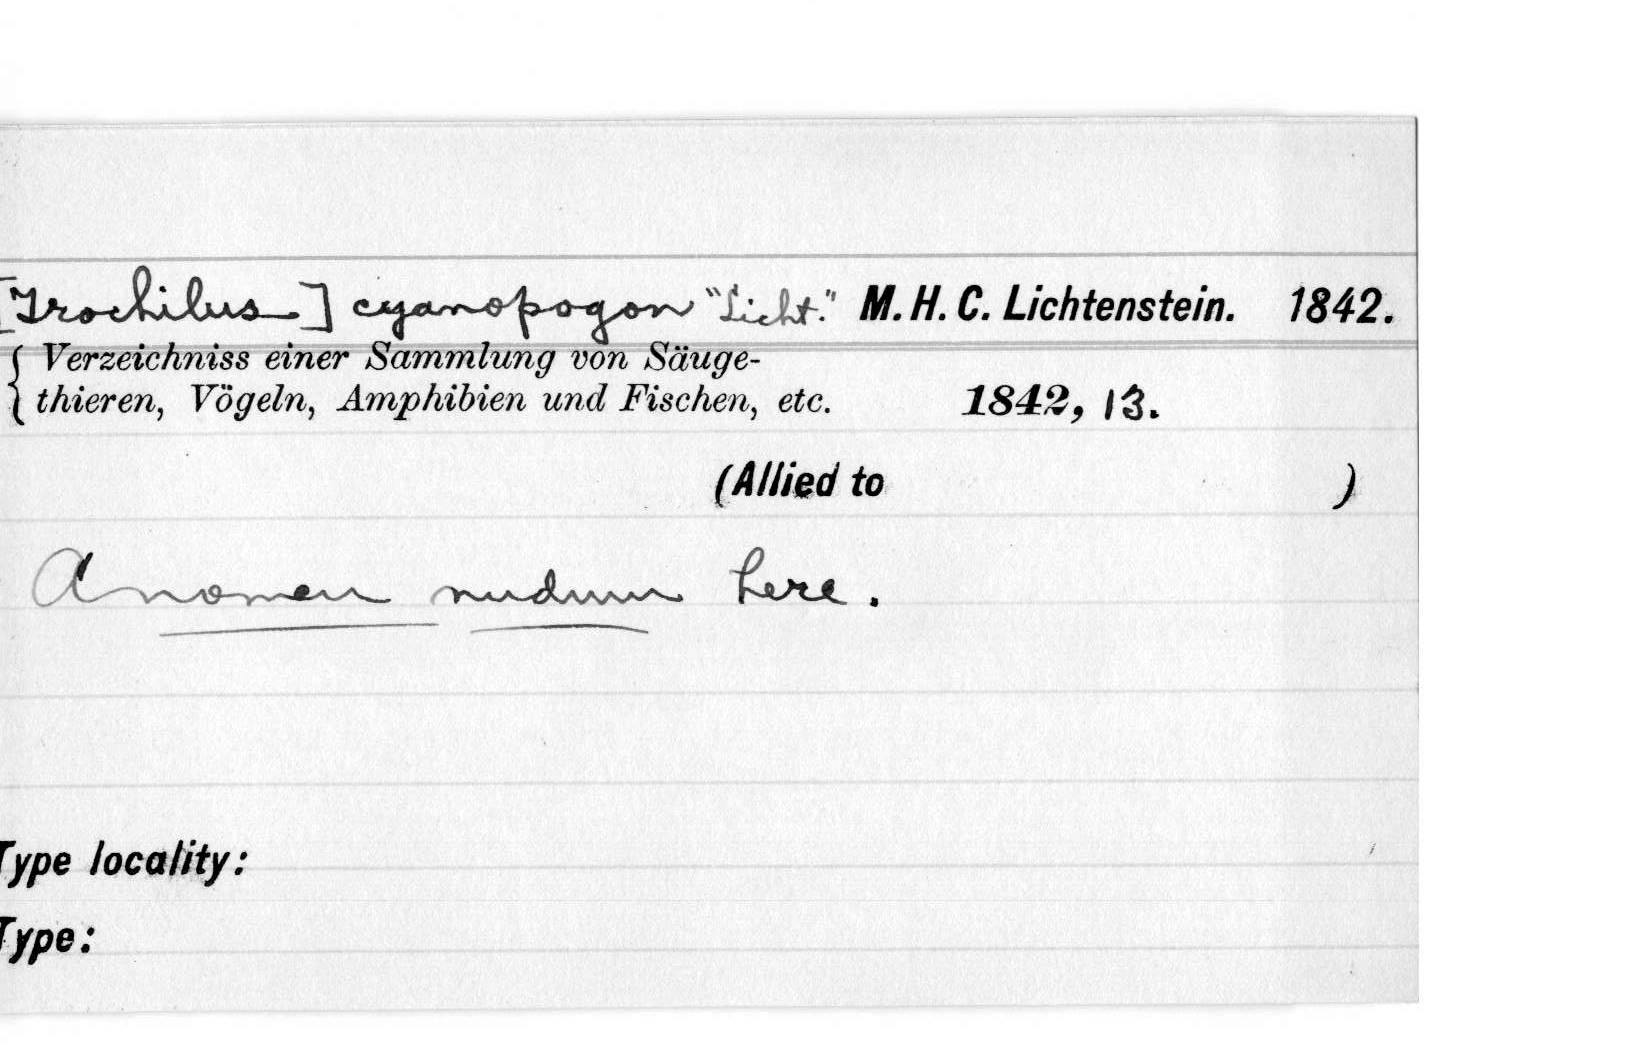 [Trochilus] cyanopogon "Licht." M. H. C. Lichtenstein. 1842.
Verzeichniss einer Sammlung von Säuge-
thieren, Vögeln, Amphibien und Fischen, etc. 1842, 13.
(Allied to )
A nomen nudum here.
Type locality:
Type: